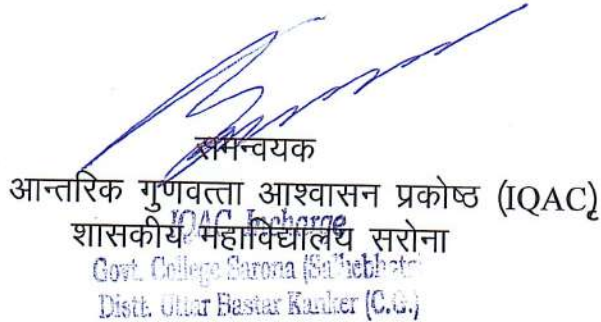 समन्वयक
आन्तरिक गुणवत्ता आश्वासन प्रकोष्ठ (IQAC)
IQAC Incharge
शासकीय महाविद्यालय सरोना
Govt. College Sarona
Distt. Uttar Bastar Kanker (C.G.)